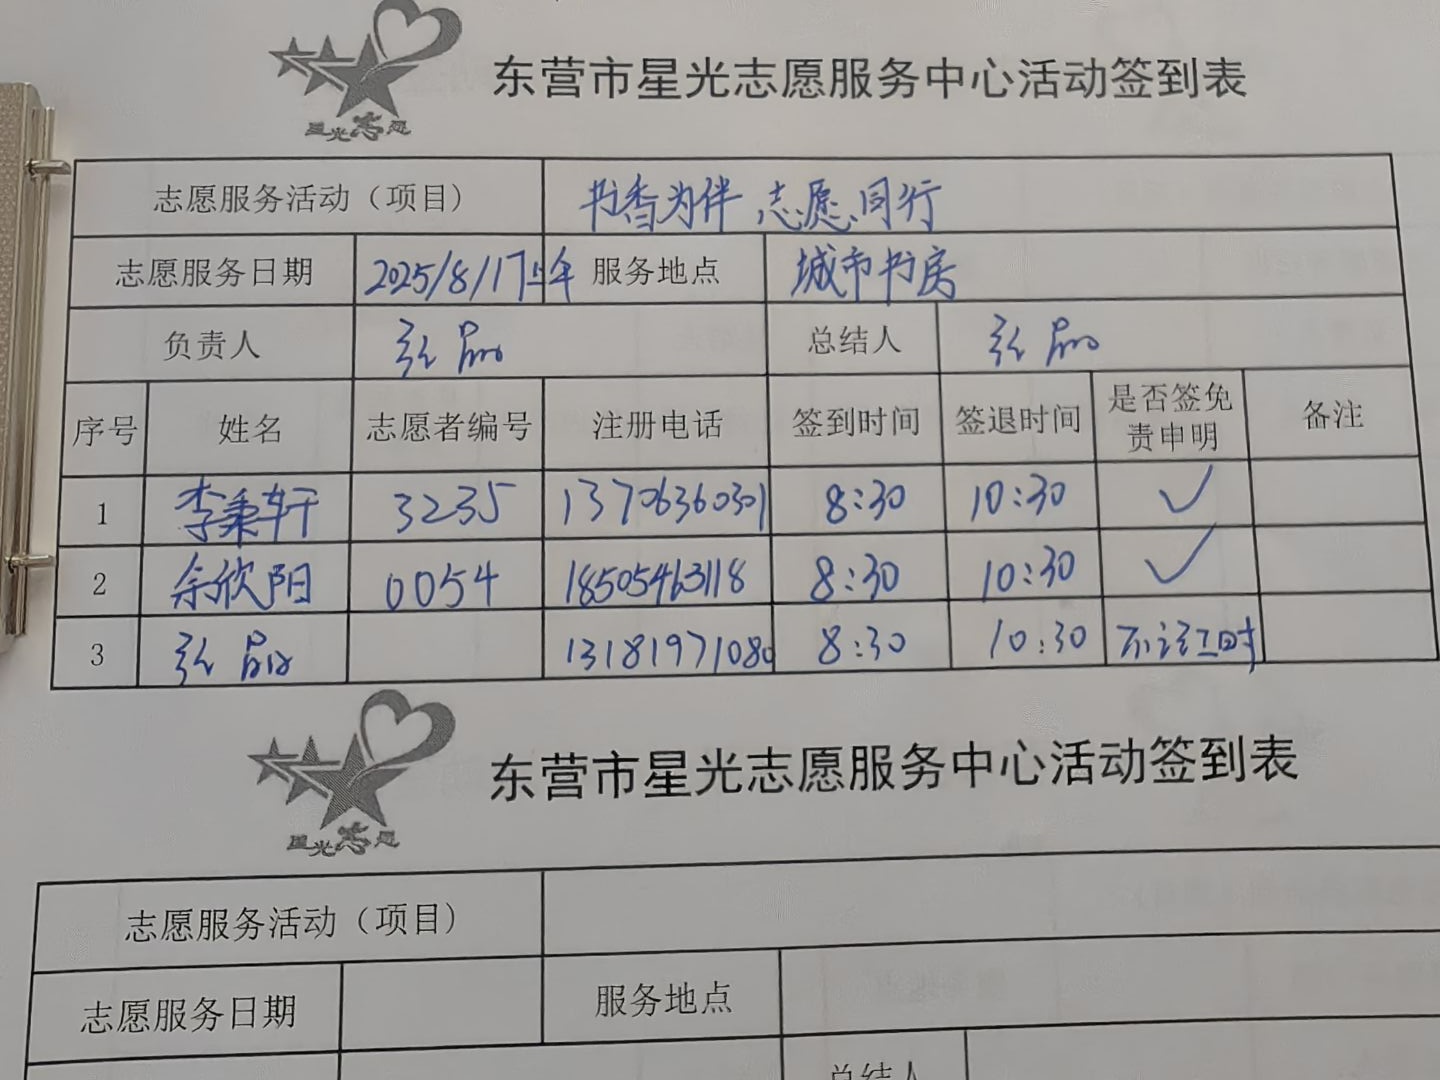 星光志愿
东营市星光志愿服务中心活动签到表
志愿服务活动（项目） 书香为伴 志愿同行
志愿服务日期 2025/8/17上午 服务地点 城市书房
负责人 张晶 总结人 张晶
序号 姓名 志愿者编号 注册电话 签到时间 签退时间 是否签免责申明 备注
1 李秉轩 3235 13706360301 8:30 10:30 ✓
2 余欣阳 0054 18505463118 8:30 10:30 ✓
3 张晶 13181971080 8:30 10:30
星光志愿
东营市星光志愿服务中心活动签到表
志愿服务活动（项目）
志愿服务日期 服务地点
总结人